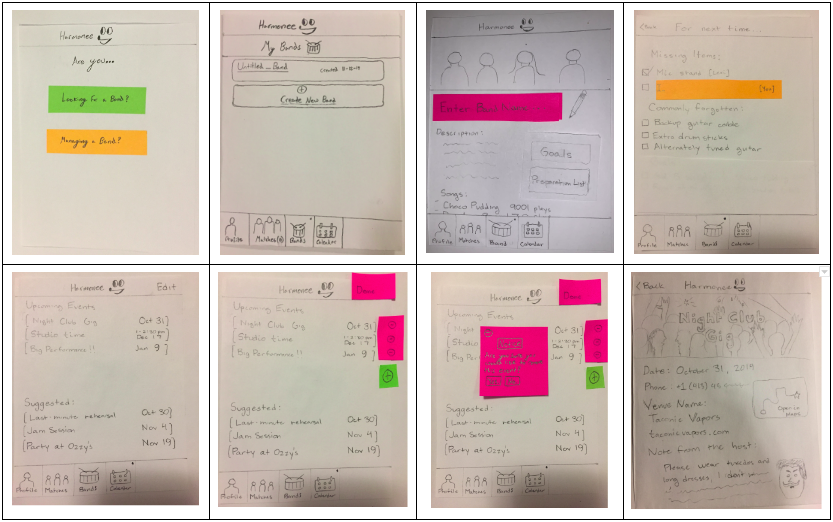 Harmonee
Are you...
Looking for a Band?
Managing a Band?
Harmonee
My Bands
Untitled_Band
created
Create New Band
Profile
Matches
Bands
Calendar
Harmonee
Enter Band Name
Description:
Goals
Preparation List
Songs:
Choco Pudding 9001 plays
Profile
Matches
Band
Calendar
<Back
For next time...
Missing Items:
Mic stand
Commonly Forgotten:
Backup guitar cable
Extra drumsticks
Alternately tuned guitar
Profile
Matches
Band
Calendar
Harmonee
Edit
Upcoming Events
[Night Club Gig Oct 31]
[Studio time Dec 17]
[Big Performance!! Jan 9]
Suggested:
[Last-minute rehersal Oct 30]
[Jam Session Nov 4]
[Party at Ozzy's Nov 19]
Profile
Matches
Bands
Calendar
Harmonee
Done
Upcoming Events
[Night Club Gig Oct 31]
[Studio time Dec 17]
[Big Performance!! Jan 9]
Suggested:
[Last-minute rehersal Oct 30]
[Jam Session Nov 4]
[Party at Ozzy's Nov 19]
Profile
Matches
Bands
Calendar
Harmonee
Done
Upcoming Events
[Night Oct 31]
[Studio Dec 17]
[Big Pe Jan 9]
Suggested:
[Last-minute rehersal Oct 30]
[Jam Session Nov 4]
[Party at Ozzy's Nov 19]
Profile
Matches
Bands
Calendar
<Back
Harmonee
Night Club
Gig
Date: October 31, 2019
Phone: +1 (415)
Venue Name:
Tacnic Vapors
tacnicvapors.com
Open in
Maps
Note from the host:
Please wear tuxedos and
long dresses, I don't